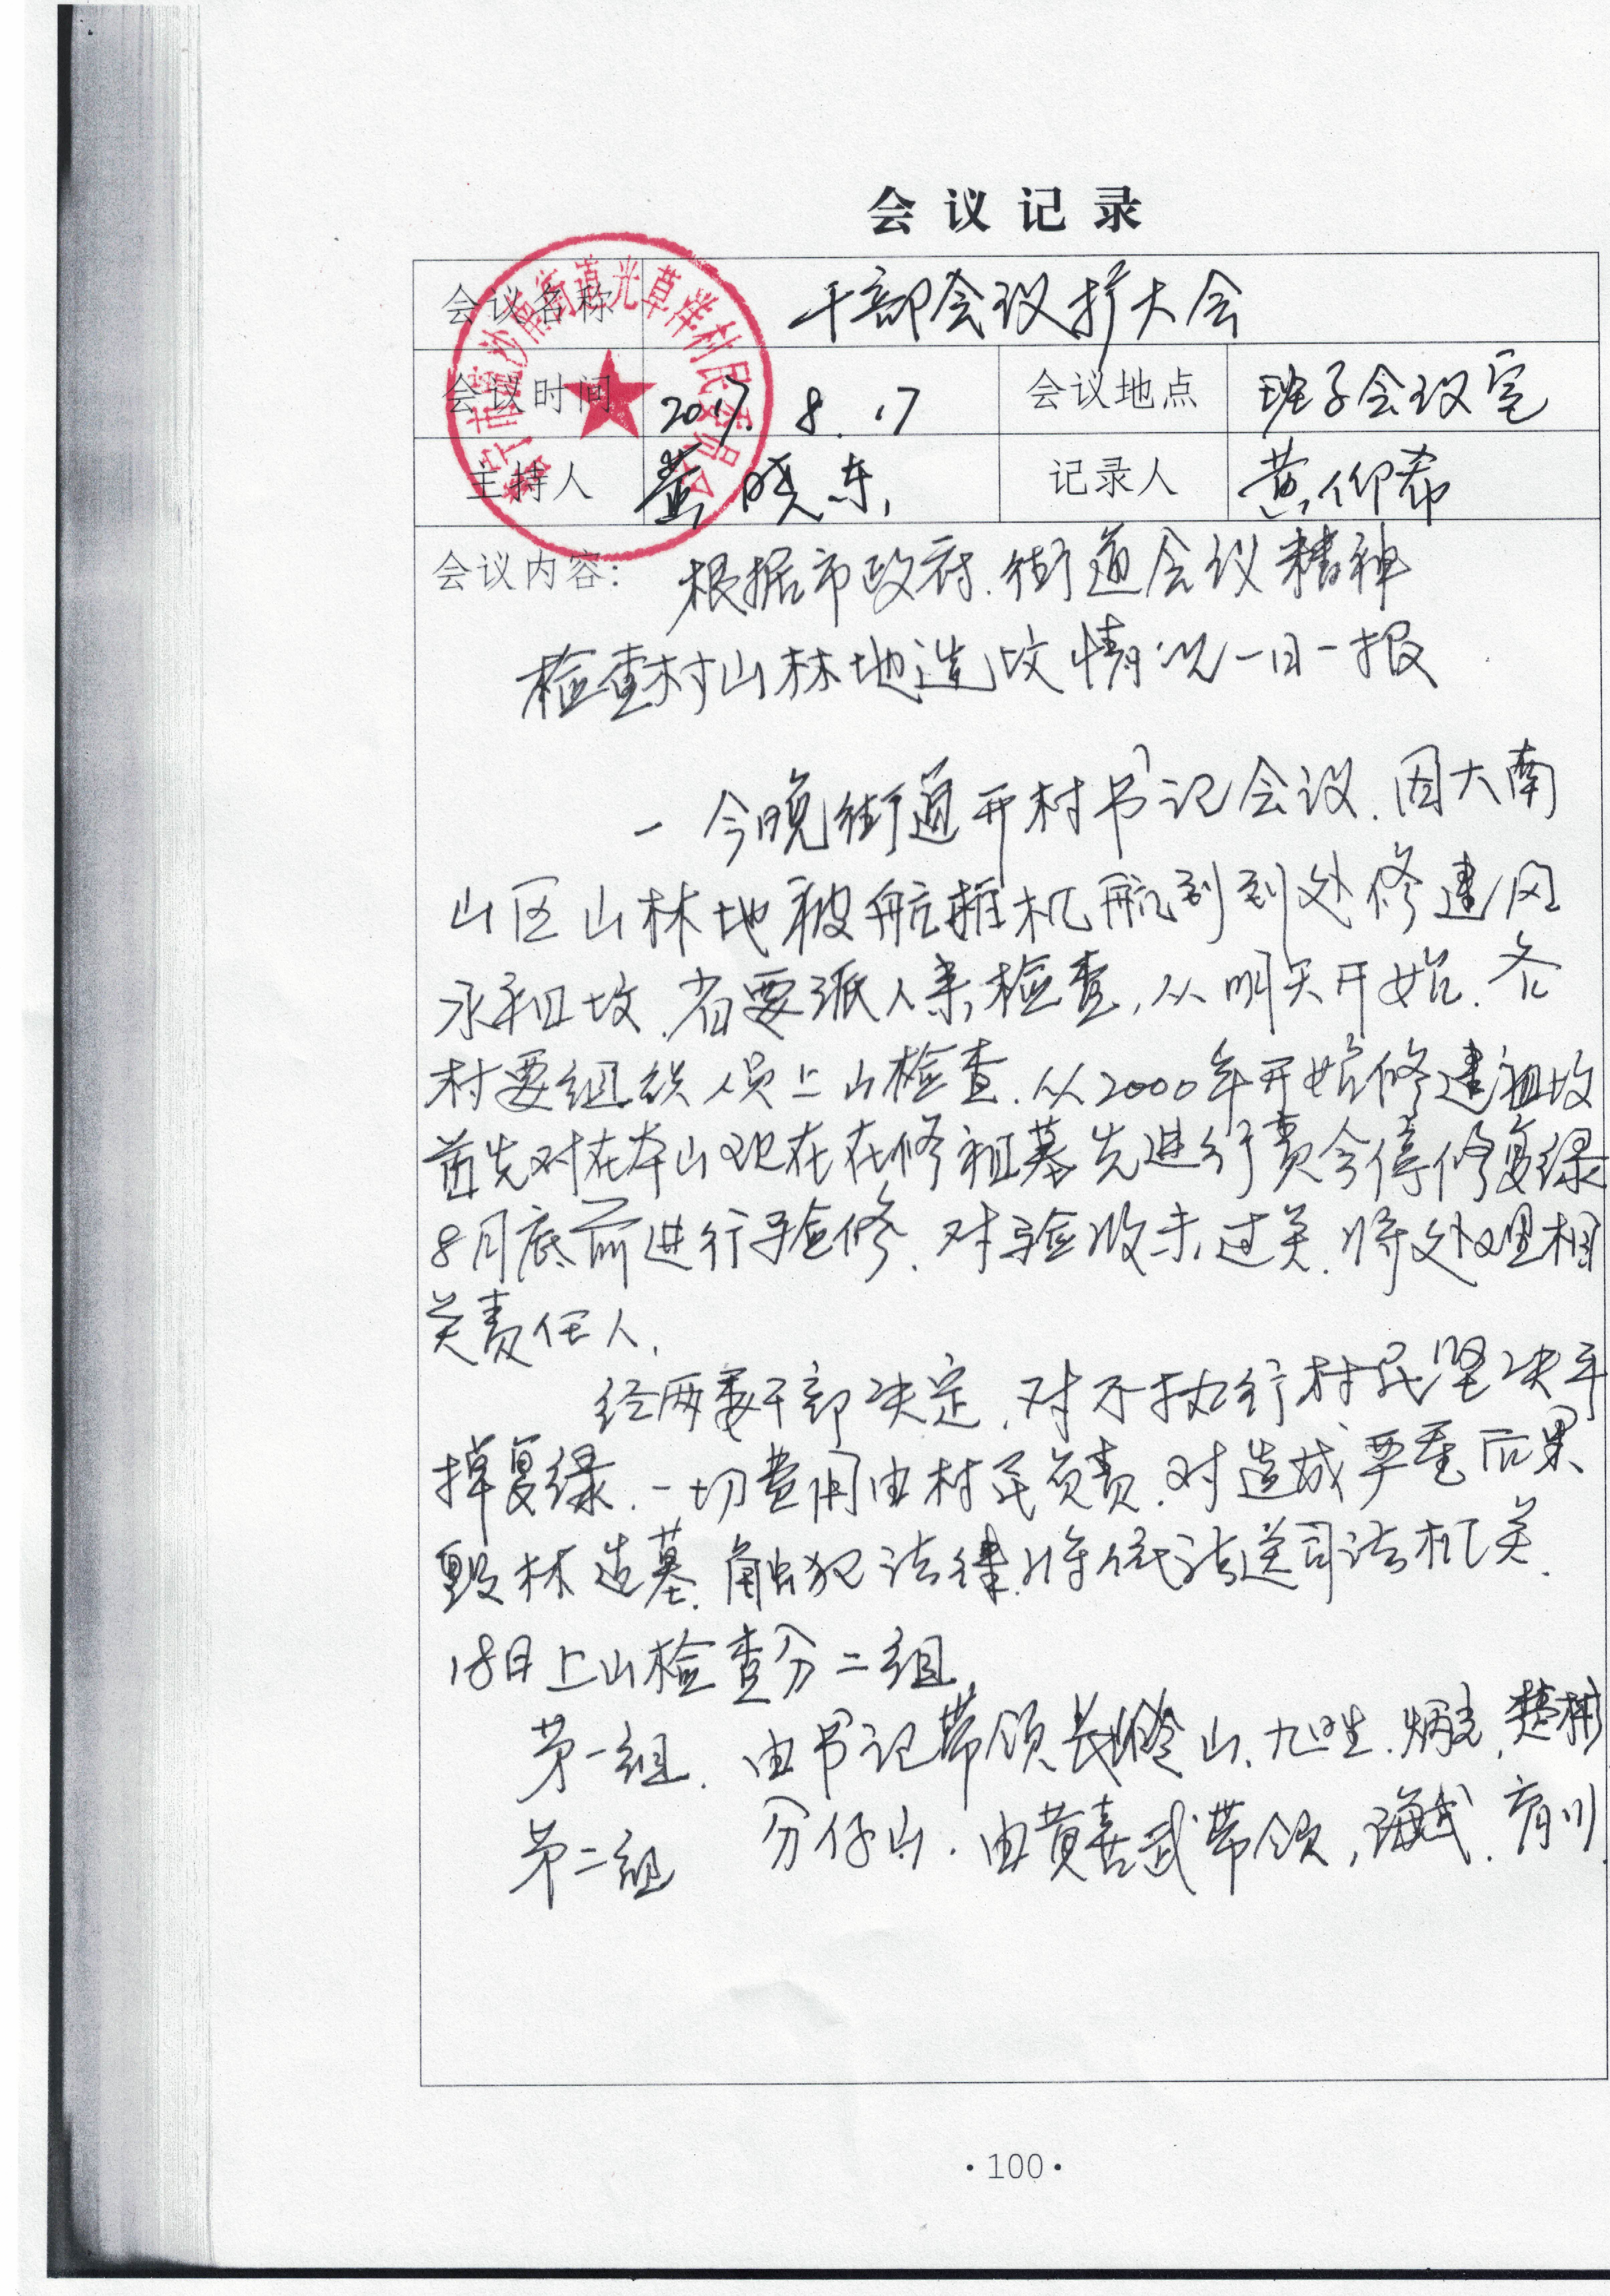 会议记录
会议名称 干部会议扩大会
会议时间 2017.8.17 会议地点 班子会议室
主持人 黄晓东 记录人 黄仰希
会议内容: 根据市政府.街道会议精神
检查村山林地造坟情况一日一报
一 今晚街道开村书记会议.因大南
山区山林地被航摄机航到到处修建
坟.省要派人来检查,从明天开始.各
村要组织人员上山检查.从2000年开始修建祖坟
首先对在本山现在在修祖墓先进行责令停修复绿
8月底前进行验修.对验收未过关.将处理相
关责任人.
经两委干部决定.对不执行村民坚决平
掉复绿.一切费用由村民负责.对造成严重后果
毁林造墓.触犯法律.将依法送司法机关.
18日上山检查分二组
第一组. 由书记带领长岭山.
第二组 分仔山.由黄喜武带领,
沙南街道光草洋村民委员会
·100·